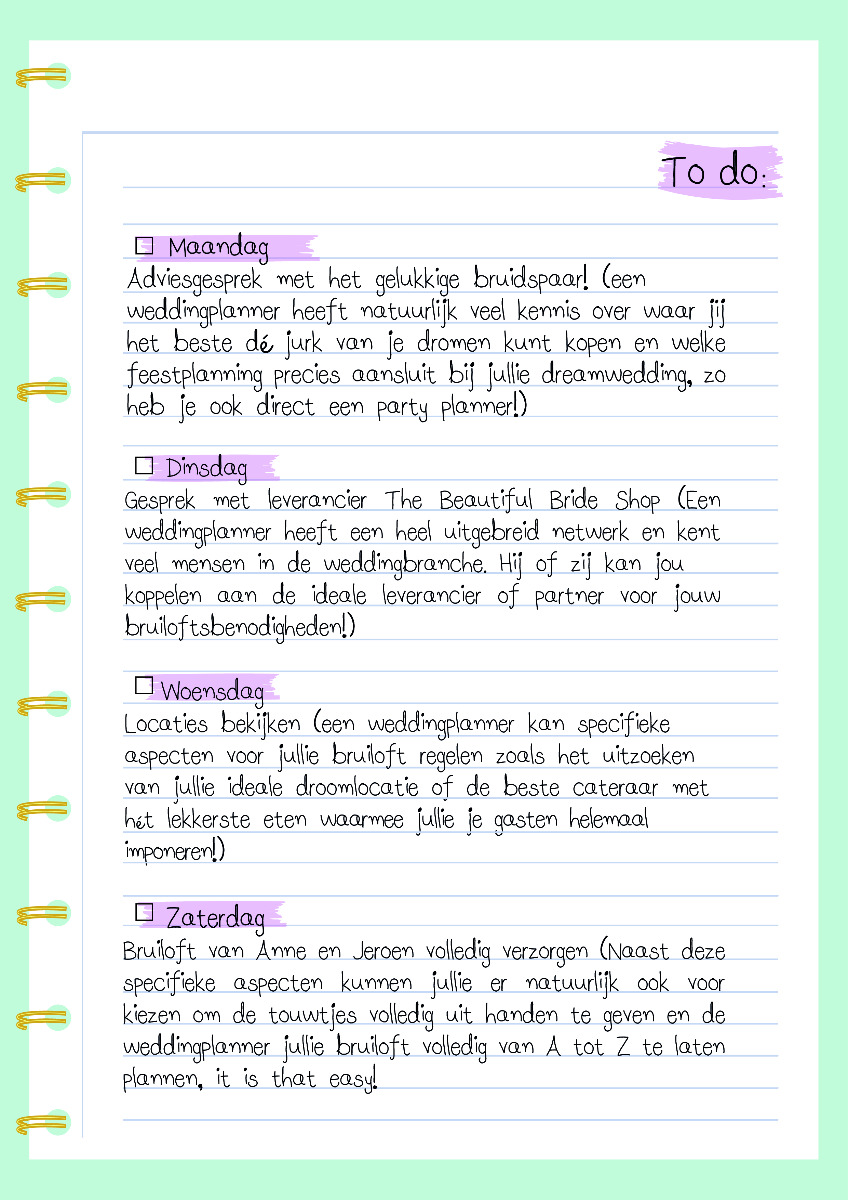 To do:
☐ Maandag
Adviesgesprek met het gelukkige bruidspaar! (een
weddingplanner heeft natuurlijk veel kennis over waar jij
het beste dé jurk van je dromen kunt kopen en welke
feestplanning precies aansluit bij jullie dreamwedding, zo
heb je ook direct een party planner!)
☐ Dinsdag
Gesprek met leverancier The Beautiful Bride Shop (Een
weddingplanner heeft een heel uitgebreid netwerk en kent
veel mensen in de weddingbranche. Hij of zij kan jou
koppelen aan de ideale leverancier of partner voor jouw
bruiloftsbenodigheden!)
☐ Woensdag
Locaties bekijken (een weddingplanner kan specifieke
aspecten voor jullie bruiloft regelen zoals het uitzoeken
van jullie ideale droomlocatie of de beste cateraar met
hét lekkerste eten waarmee jullie je gasten helemaal
imponeren!)
☐ Zaterdag
Bruiloft van Anne en Jeroen volledig verzorgen (Naast deze
specifieke aspecten kunnen jullie er natuurlijk ook voor
kiezen om de touwtjes volledig uit handen te geven en de
weddingplanner jullie bruiloft volledig van A tot Z te laten
plannen, it is that easy!